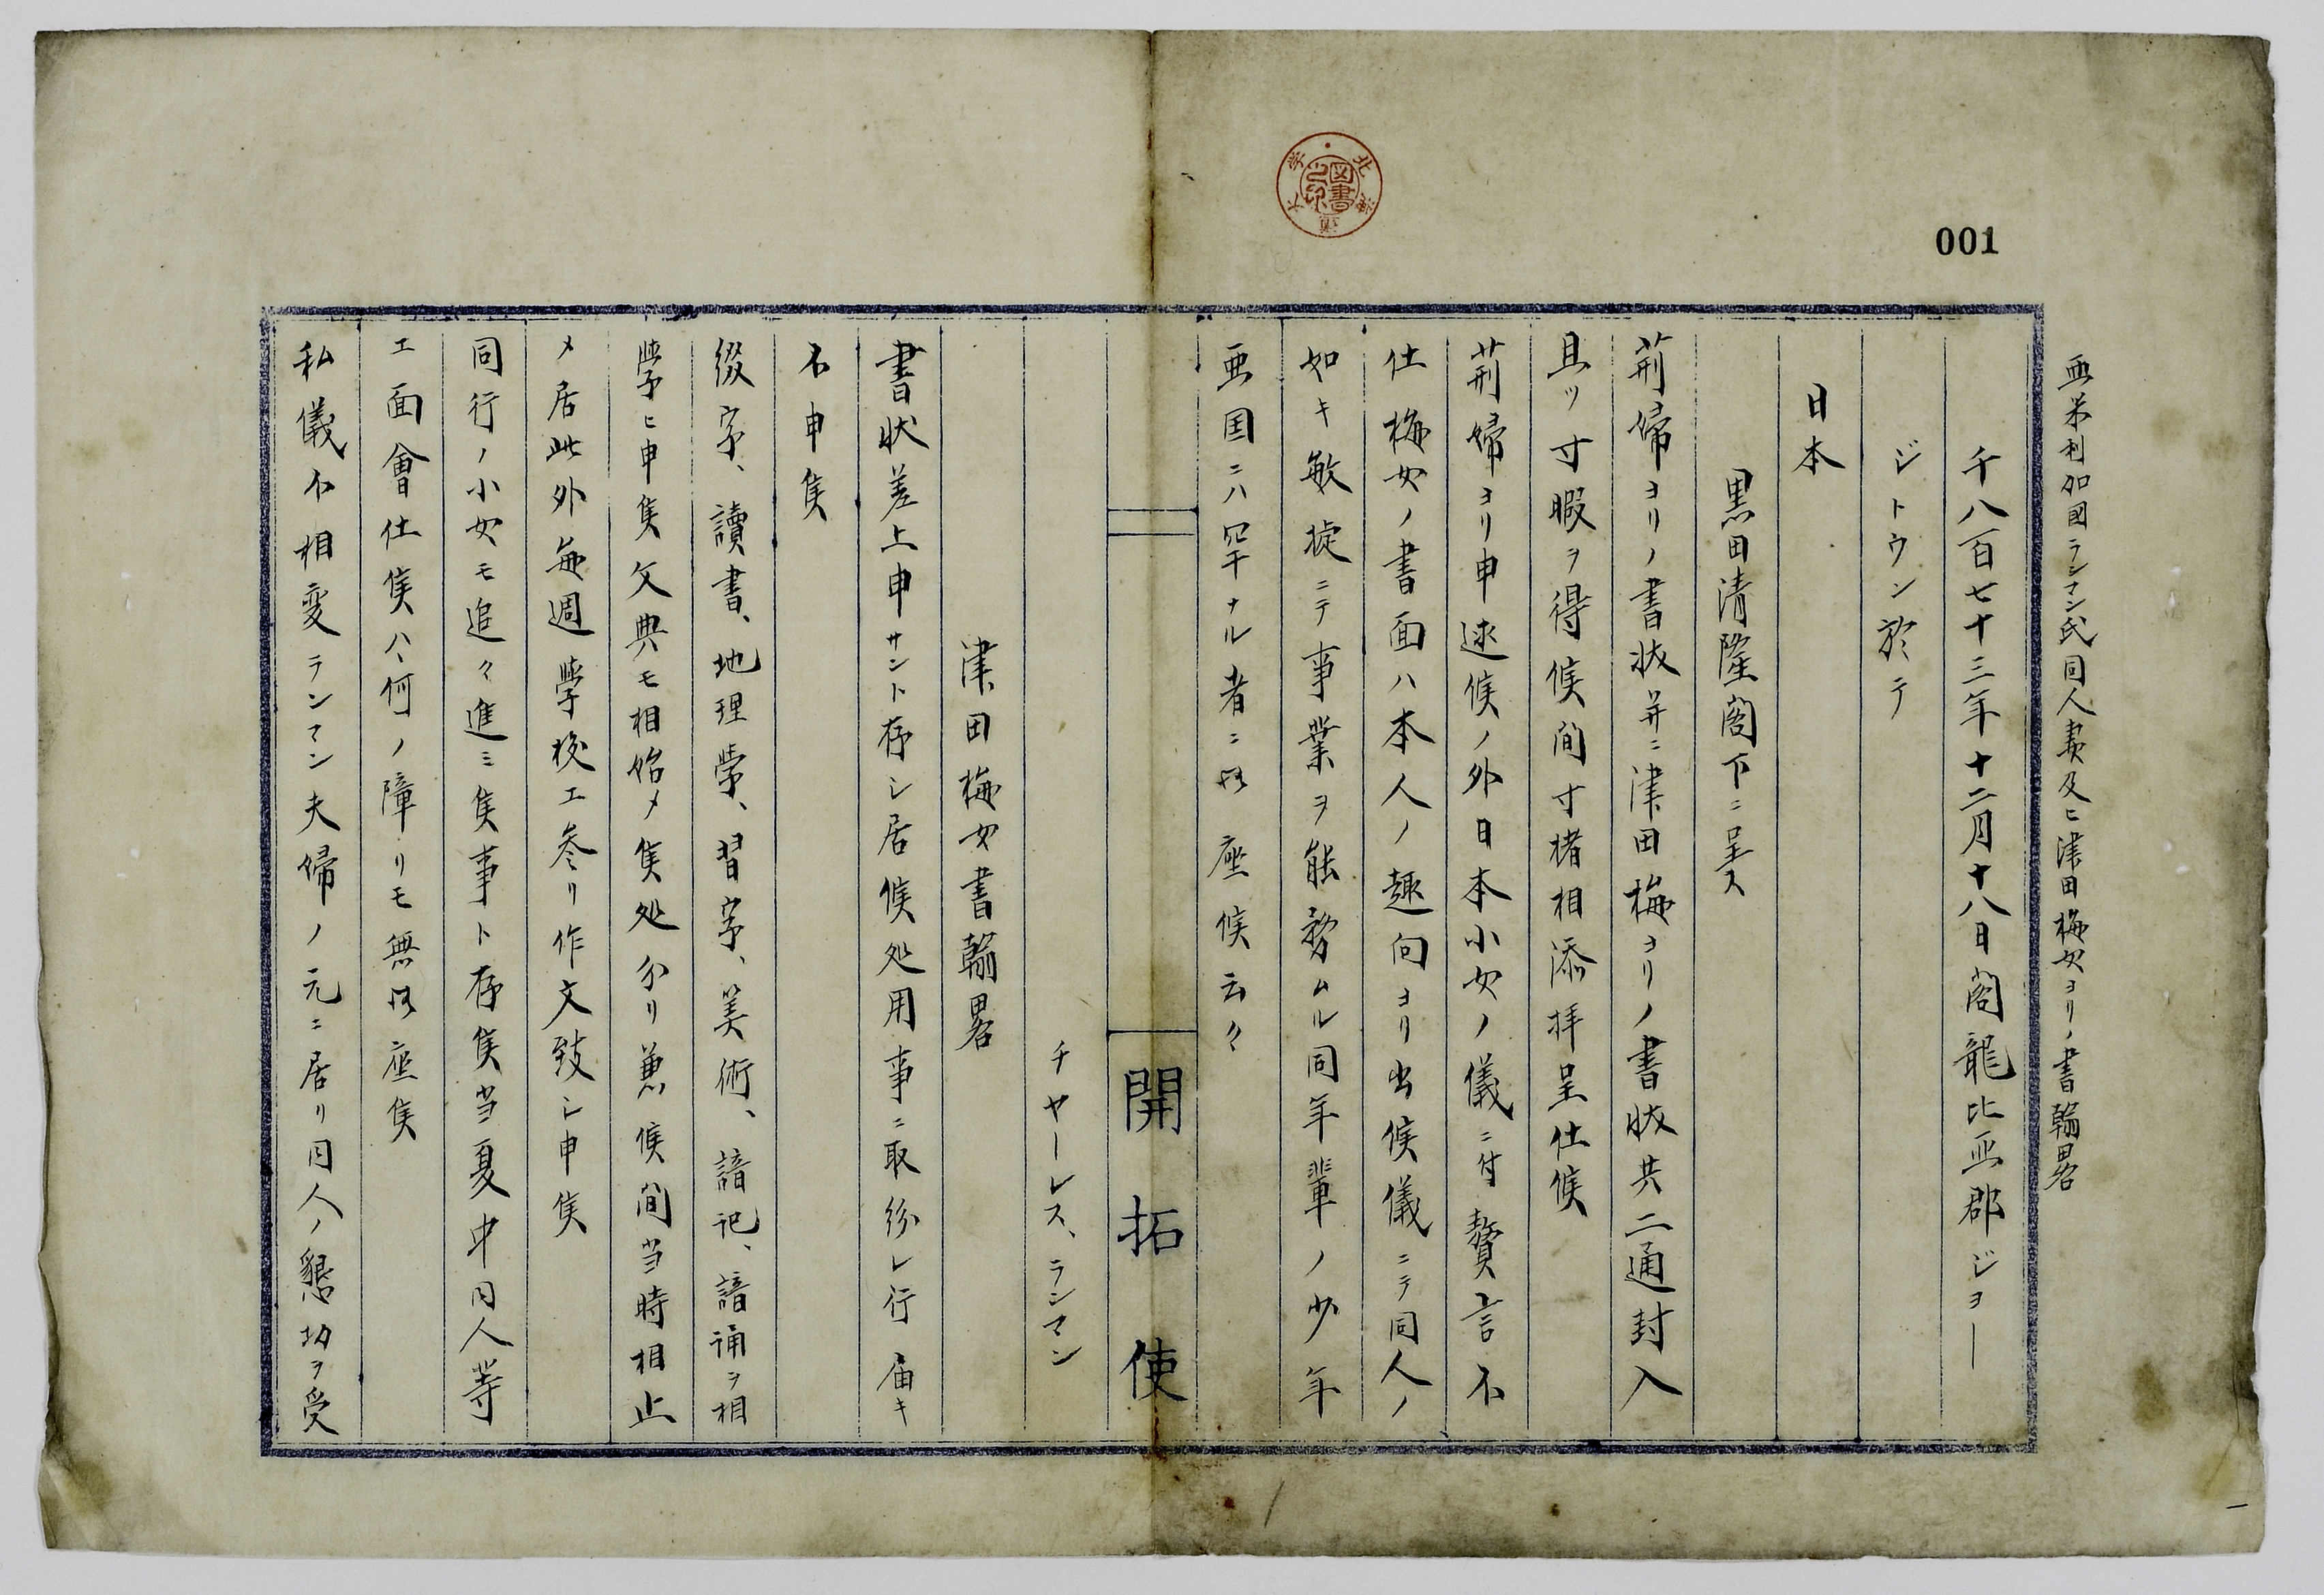 001
亜米利加國ランマン氏同人妻及ヒ津田梅女ヨリノ書翰畧
千八百七十三年十二月十八日閣龍比亜郡ジヨー
ジトウン於テ
日本
黒田清隆閣下ニ呈ス
荊婦ヨリノ書状并ニ津田梅ヨリノ書状共二通封入
且ツ寸暇ヲ得候間寸楮相添拝呈仕候
荊婦ヨリ申述候ノ外日本小女ノ儀ニ付贅言不
仕梅女ノ書面ハ本人ノ趣向ヨリ出候儀ニテ同人ノ
如キ敏捷ニテ事業ヲ能勤ムル同年輩ノ少年
亜国ニハ罕ナル者ニ御座候云々
開拓使
チヤーレス、ランマン
津田梅女書翰畧
書状差上申サント存シ居候処用事ニ取紛レ行届キ
不申候
綴字、讀書、地理学、習字、美術、諳記、諳誦ヲ相
學ヒ申候文典モ相始メ候処分リ兼候間当時相止
メ居此外毎週學校エ参リ作文致シ申候
同行ノ小女モ追々進ミ候事ト存候当夏中同人等
エ面會仕候ハ何ノ障リモ無御座候
私儀不相変ランマン夫婦ノ元ニ居リ同人ノ懇切ヲ受